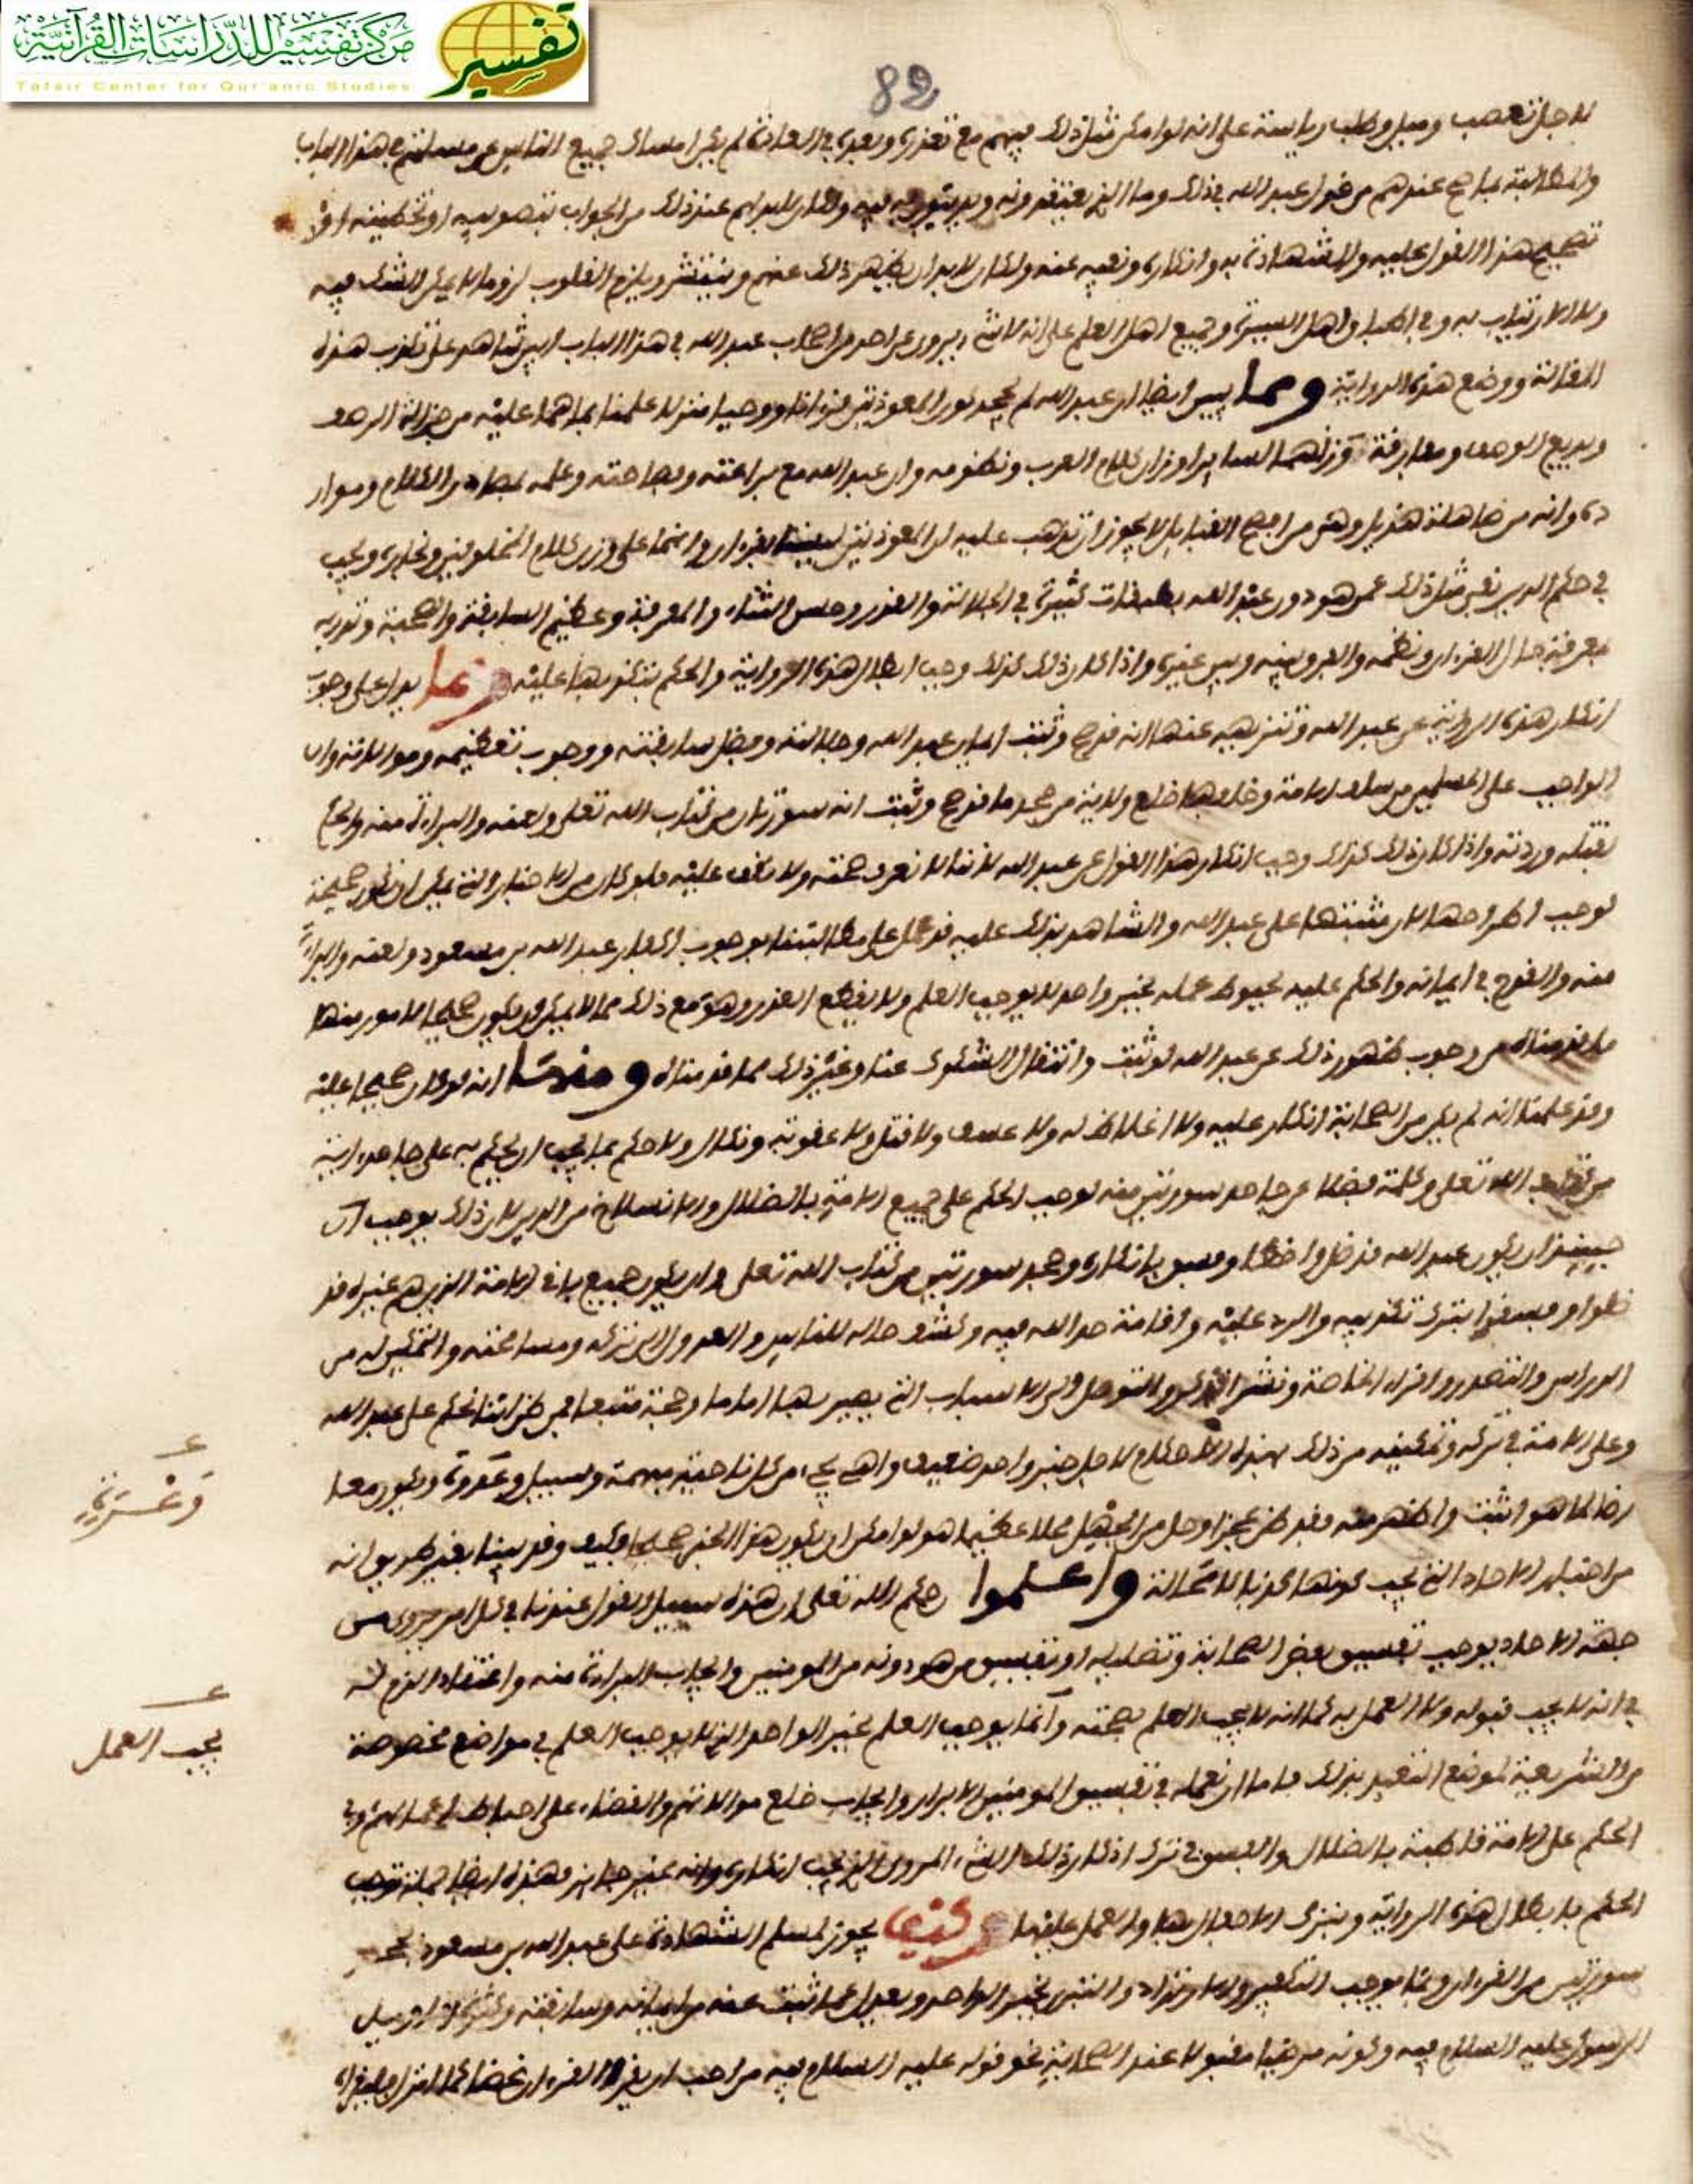 مركز تفسير للدراسات القرآنية
Tafsir Center for Qur'anic Studies
تفسير
82
لاجل تعصب وميل وطلب رياسة على انه لو امكن مثل ذلك فيهم مع تعذره وبعده في العادة لم يجز امساك جميع الناس عن مسلتهم في هذا الباب
والمطالبة بما صح عندهم من قول عبد الله في ذلك وما الذي يعتقدونه فيه ولكان لا بد لهم عند ذلك من الجواب بتصويبه او تخطيئته او
تصحيح هذا القول عليه والشهادة به وانكاره ونفيه عنه ولكان لا بد ان يظهر ذلك عنهم وينتشر ويلزم القلوب لزوما لا يمكن الشك فيه
ولا الارتياب به وفي اطباق اهل السيرة وجميع اهل العلم على انه لا شيء يروى عن احد من اصحاب عبد الله في هذا الباب ابين شاهد على تكذب هذه
المقالة ووضع هذه الرواية ومما يبين ايضا ان عبد الله لم يجحد كون المعوذتين قرءانا ووحيا منزلا علمنا بما هما عليه من جزالة الرصف
وبديع الوصف ومفارقة وزنهما لساير اوزان كلام العرب ونظومه وان عبد الله مع براعته وفصاحته وعلمه بمصادر الكلام وموار
ده وانه من هذيل وهي من افصح القبايل لا يجوز ان يذهب عليه ان المعوذتين ليستا بقرءان وانهما على وزن كلام المخلوقين ونجاره ويجب
في حكم الدين نفي مثل ذلك عمن هو دون عبد الله بطبقات كثيرة في الجلالة والقدر وحسن الثناء والمعرفة وعظيم السابقة والصحبة
معرفة حال القرءان ونظمه والفرق بينه وبين غيره واذا كان ذلك كذلك وجب ابطال هذه الرواية والحكم بتكذبها عليه ومما يدل على وجوب
انكار هذه الرواية عن عبد الله وتنزيهه عنها انه قد صح وثبت ايمان عبد الله وجلالته وفضل سابقته ووجوب تعظيمه وموالاته وان
الواجب على المسلمين من سلف الامة وخلفها خلع ولاية من جحد ما قد صح وثبت انه سورتان من كتاب الله تعلى ولعنه والبراءة منه والحكم
بقتله وردته واذا كان ذلك كذلك وجب انكار هذا القول عن عبد الله لاننا لا نعرف صحته ولا نقف عليه فلو كان من الاخبار التي يمكن ان تكون صحيحة
لوجب اطراحها لان مثبتها على عبد الله والشاهد بذلك عليه قد عمل على مطالبتنا بوجوب اكفار عبد الله بن مسعود ولعنه والبراءة
منه والقدح في ايمانه والحكم عليه بحبوط عمله بخبر واحد لا يوجب العلم ولا يقطع العذر وهو مع ذلك مما لا يمكن ان يكون صحيحا لامور منها
ما قدمناه من وجوب ظهور ذلك عن عبد الله لو ثبت وانتفاء الشكوك عنا وغير ذلك مما قدمناه ومنها انه لو كان صحيحا عليه
وقد علمنا انه لم يكن من الصحابة انكار عليه ولا اغلاظ له ولا عسف ولا قتل ولا عقوبة ونكال ولا حكم بما يجب ان يحكم به على جاحد اية
من كتاب الله تعلى وكلمة فضلا عن جاحد سورتين منه لوجب الحكم على جميع الامة بالضلال والانسلاخ من الدين لان ذلك يوجب
حينئذ ان يكون عبد الله قد ضل واخطا وفسق بانكاره وجحد سورتين من كتاب الله تعلى وان يكون جميع باقي الامة الذين هم غيره قد
ضلوا وفسقوا بترك تكفيره والرد عليه واقامة حد الله فيه وكشف حاله للناس والعدول الى تركه ومسامحته والتمكين له من
الدراس والتصدر واقراء الخاصة ونشر الذكر والتوصل الى الاسباب التي يصير بها اماما وحجة متبعا فمن ظن اننا نحكم على عبد الله
وعلى الامة في تركه وتمكينه من ذلك بهذه الاحكام لاجل خبر واحد ضعيف واه يجيء من كل ناحية مبهمة وسبيل وعرة ويكون معا
رضا لما هو اثبت واظهر منه فقد ظن عجزا وحل من الجهل محلا عظيما هو لو امكن ان يكون هذا الخبر صحيحا فكيف وقد بينا بغير طريق انه
من اخبار الاحاد التي يجب كونها كذبا لا محالة واعلموا رحمكم الله تعلى ان هذه سبيل القول عندنا في كل امر يروى من
جهة الاحاد يوجب تفسيق بعض الصحابة وتضليله او تفسيق من هو دونه من المومنين وايجاب البراءة منه واعتقاد الذم له
في انه لا يجب قبوله ولا العمل به كما انه لا يجب العلم بصحته وانما يوجب العلم بخبر الواحد الذي لا يوجب العلم في مواضع مخصوصة
من الشريعة لموضع التعبد بذلك فاما ان نعمله في تفسيق المومنين الابرار وايجاب خلع موالاتهم والقضاء على احباط اعمالهم وفي
الحكم على الامة قاطبة بالضلال والفسق في ترك انكار ذلك الشيء المروي الذي يجب انكاره فانه غير جايز فهذه ايضا جملة توجب
الحكم بابطال هذه الرواية وبترك الاحفال بها والعمل عليها وكيف يجوز لمسلم الشهادة على عبد الله بن مسعود بجحد
سورتين من القرءان وبما يوجب التكفير والارتداد والتبري بخبر الواحد ويعدل عما ثبت عنه من ايمانه وسابقته وكثرة اقاويل
الرسول عليه السلام فيه وكونه مرضيا مقبولا عند الصحابة نحو قوله عليه السلام فيه من احب ان يقرا القرءان غضا كما انزل فليقراه
وعسرة
يجب العمل